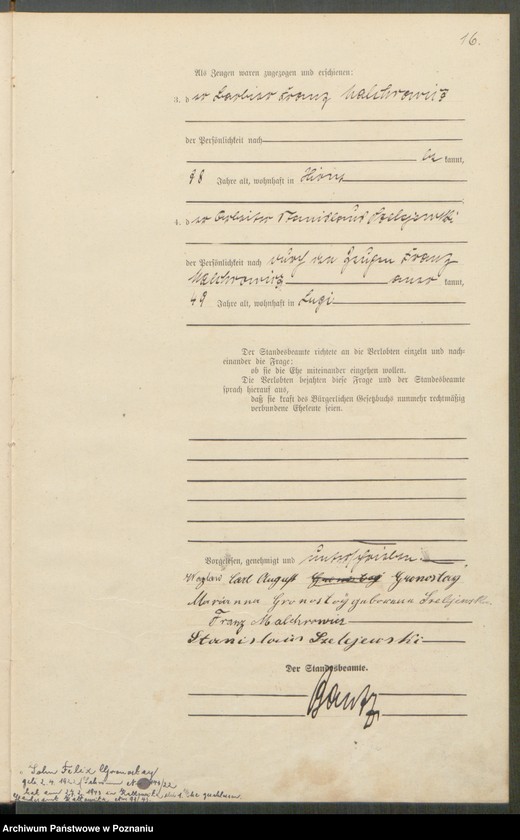 16.
Als Zeugen waren zugezogen und erschienen:
3. der Franz Malchrowicz
der Persönlichkeit nach
be kannt,
98 Jahre alt, wohnhaft in
4. der Arbeiter Stanislaus Szelejewski
der Persönlichkeit nach durch den Zeugen Franz
Malchrowicz aner kannt,
49 Jahre alt, wohnhaft in Lugi
Der Standesbeamte richtete an die Verlobten einzeln und nach-
einander die Frage:
ob sie die Ehe miteinander eingehen wollen.
Die Verlobten bejahten diese Frage und der Standesbeamte
sprach hierauf aus,
daß sie kraft des Bürgerlichen Gesetzbuchs nunmehr rechtmäßig
verbundene Eheleute seien.
Vorgelesen, genehmigt und unterschrieben
Carl August Gronostay
Marianna Gronostay geborene Szelejewsk
Franz Malchrowicz
Stanislaus Szelejewski
Der Standesbeamte.
Sohn Felix Gronostay
geb. 2. 4.
hat am in Kattowitz die Ehe geschlossen.
Standesamt Kattowitz
Archiwum Państwowe w Poznaniu